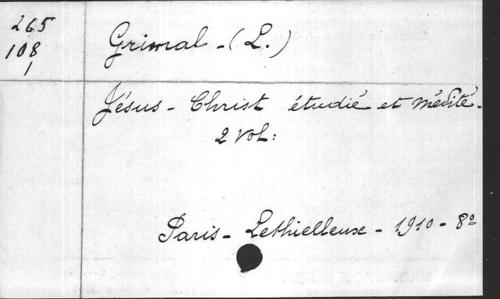 265
108
1
Grimal - (L.)
Jésus - Christ étudié et médité.
2 vol:
Paris - Lethielleux - 1910 - 8º